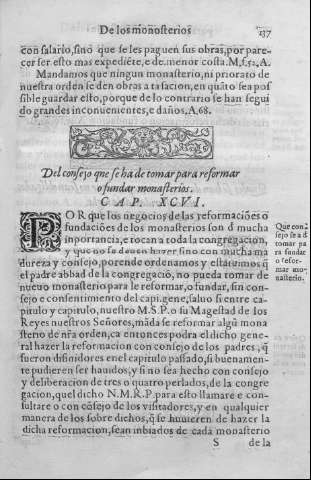 De los monosterios
137
con salario, sinó que se les paguen sus obras, por pare-
cer ser esto mas expediẽte, e de menor costa. M, f, 52, A.
Mandamos que ningun monasterio, ni priorato de
nuestra ordẽn se den obras a tasacion, en quãto sea pos
sible guardar esto, porque de lo contrario se han segui
do grandes inconuenientes, e daños, A, 68.
Del consejo que se ha de tomar para reformar
o fundar monasterios.
CAP. XCVI.
POR que los negocios de las reformaciões o
fundaciões de los monasterios son d mucha
inportancia, e tocan a toda la congregacion,
y que no se deuen hazer sino con mucha ma
dureza y consejo, porende ordenamos y estatuimos q̃
el padre abbad de la congregaciõ, no pueda tomar de
nueuo monasterio para le reformar, o fundar, sin con-
sejo e consentimiento del capi. gene, saluo si entre ca-
pitulo y capitulo, nuestro M. S. P. o su Magestad de los
Reyes nuestros Señores, mãda se reformar algũ mona
sterio de nr̃a orden, ca entonces podra el dicho gene-
ral hazer la reformacion con consejo de los padres, q̃
fueron difinidores en el capitulo passado, si buenamen-
te pudieren ser hauidos, y si no sea hecho con consejo
y deliberacion de tres o quatro perlados, de la congre
gacion, quel dicho N. M. R. P. para esto llamare e con-
sultare o con cõsejo de los visitadores, y en qualquier
manera de los sobre dichos, q̃ se huuieren de hazer la
dicha reformacion, sean inbiados de cada monasterio
S
de la
Que con
sejo se a d
tomar pa
ra fundar
o refor-
mar mo-
nasterio.